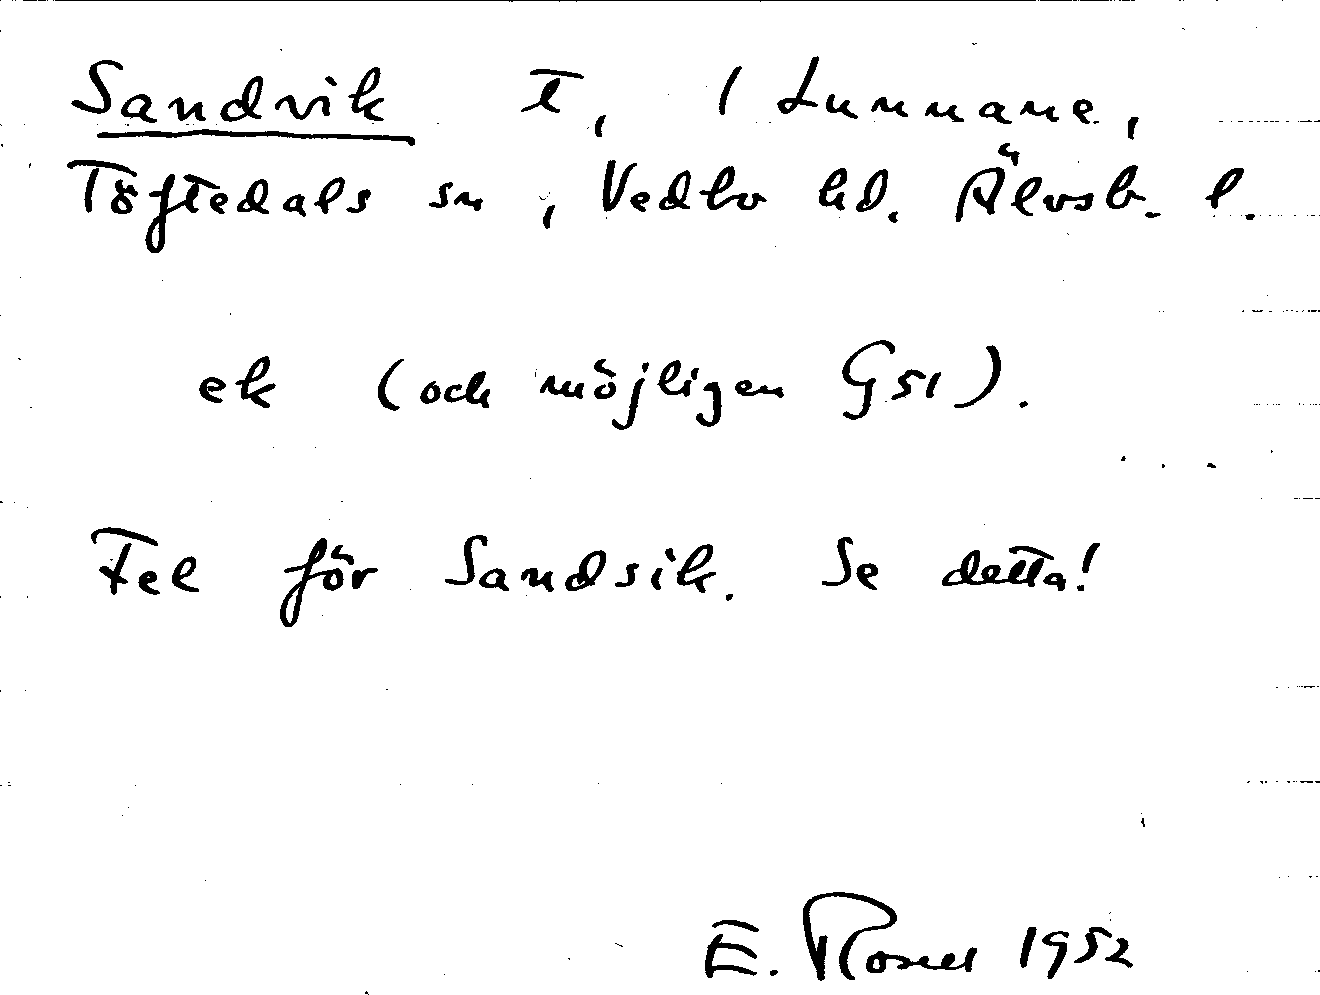 Sandvik t, 1 Lunnane,
Töftedals sn, Vedbo hd. Älvsb. l.
ek (och möjligen G51).
Fel för Sandsik. Se detta!
E. Rosell 1952